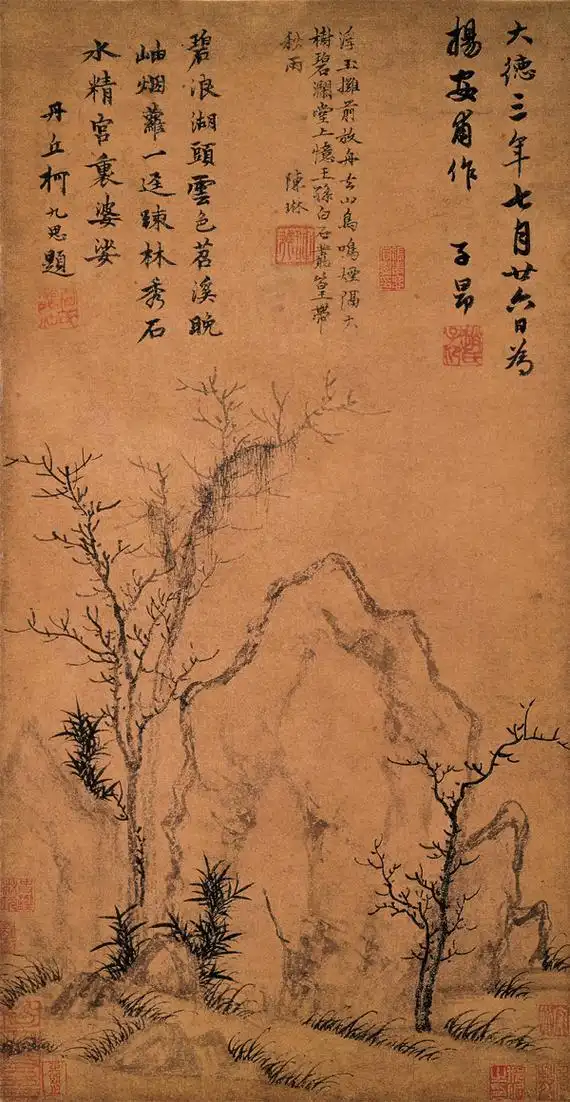 大德三年七月廿六日為
楊安甫作 子昂
趙氏子昂
浮玉攤前放舟去山鳥鳴煙隔大
樹碧瀾堂上憶王孫白石叢篁帶
秋雨
陳琳
碧浪湖頭雲色苕溪晚
岫烟蘿一逕疎林秀石
水精宮裏婆娑
丹丘柯九思題